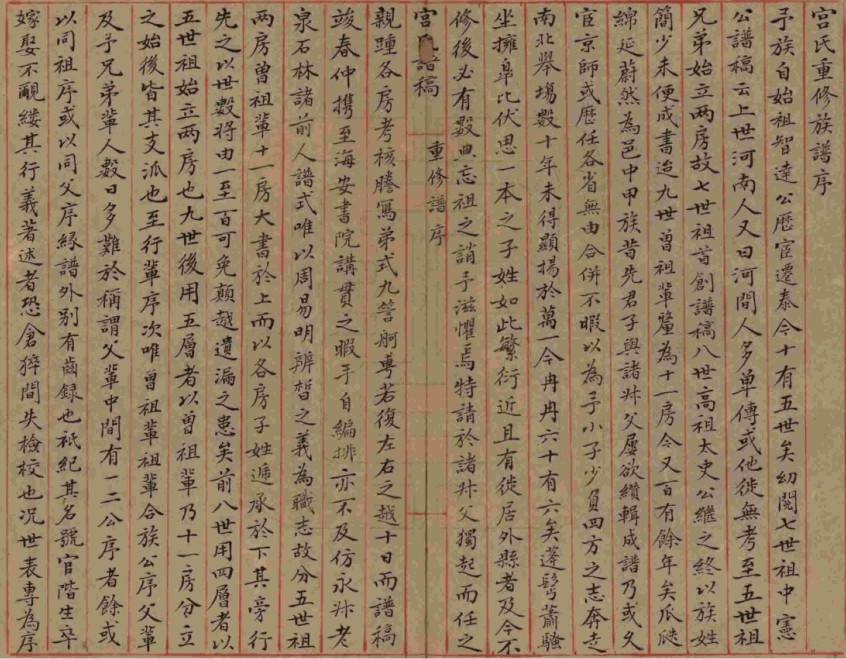 宫氏重修族譜序
予族自始祖智達公歷宦遷泰今十有五世矣幼閱七世祖中憲
公譜稿云上世河南人又曰河間人多单傳或他徙無考至五世祖
兄弟始立两房故七世祖首創譜稿八世髙祖太史公繼之終以族姓
簡少未便成書迨九世曽祖輩釐為十一房今又百有餘年矣瓜瓞
綿延蔚然為邑中甲族昔先君子與諸叔父屢欲纘輯成譜乃或久
宦京師或歷任各省無由合併不暇以為予小子少負四方之志奔走
南北舉塲數十年未得顯揚於萬一今冉冉六十有六矣蓬髩蕭騷
坐擁臯比伏思一本之子姓如此繁衍近且有徙居外縣者及今不
修後必有數典忘祖之誚予滋懼焉特請於諸叔父獨起而任之
宫氏譜稿
重修譜序
親踵各房考核謄寫弟式九誉舸粤若復左右之越十日而譜稿
竣春仲携至海安書院講貫之暇手自編排亦不及仿永叔老
泉石林諸前人譜式唯以周易明辨晢之義為職志故分五世祖
两房曽祖輩十一房大書於上而以各房子姓遞承於下其旁行
先之以世數将由一至百可免顛越遺漏之患矣前八世用四層者以
五世祖始立两房也九世後用五層者以曽祖輩乃十一房分立
之始後皆其支派也至行輩序次唯曽祖輩祖輩合族公序父輩
及予兄弟輩人數日多難於稱謂父輩中間有一二公序者餘或
以同祖序或以同父序緣譜外别有齒録也祇紀其名號官階生卒
嫁娶不覼縷其行義著述者恐倉猝間失檢校也况世表專為序